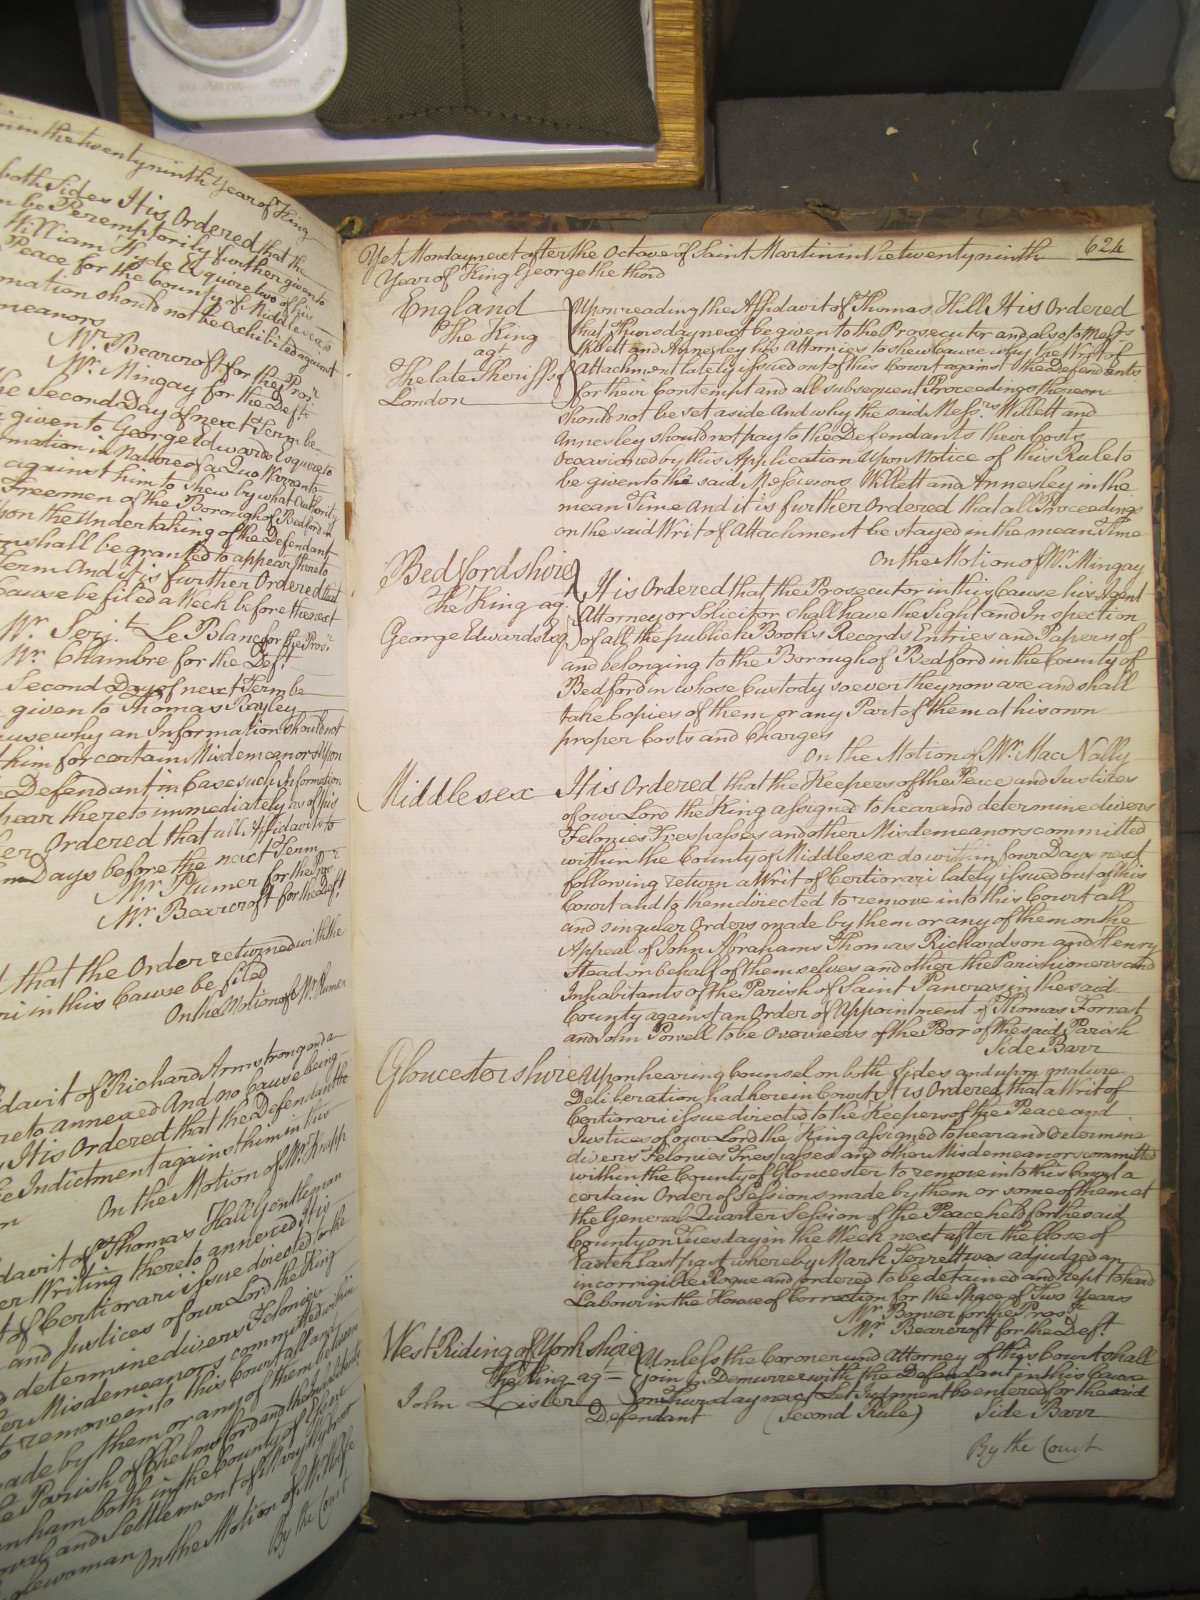 in the twenty ninth Year of King
both Sides It is Ordered that the
be Peremptorily further given to
William Hyde Esquire two of his
Peace for the County of Middlesex
mation should not be exhibited against
meanors
Mr. Bearcroft for the Prosr.
Mr. Mingay for the Deft.
the Second Day of next Term be
given to George Edwards Esquire to
mation in Nature of a Quo Warranto
against him to shew by what Authority
Freemen of the Borough of Bedford
upon the Undertaking of the Defendant
shall be granted to appear thereto
Term And it is further Ordered that
Cause be filed a Week before the next
Mr. Serjt. Le Blanc for the Prosr.
Mr. Chambre for the Deft.
Second Day of next Term be
given to Thomas Bayley
cause why an Information should not
him for certain Misdemeanors Upon
Defendant in Case such Information
appear thereto immediately as of this
Ordered that all Affidavits to
Days before the next Term
Mr. Plumer for the Prosr.
Mr. Bearcroft for the Deft.
that the Order returned with the
in this Cause be filed
On the Motion of Mr. Plumer
davit of Richard Armstrong and a
reto annexed And no Cause being
It is Ordered that the Defendant be
Indictment against them in this
On the Motion of Mr.
davit of Thomas Hall Gentleman
Writing thereto annexed It is
of Certiorari issue directed to the
and Justices of our Lord the King
determine divers Felonies
Misdemeanors committed within
remove into this Court all and
made by them or any of them between
Parish of Chelmsford and the Inhabitants
ham both in the County of Essex
oval and Settlement of Mary
lewoman On the Motion of Mr.
By the Court
Yet Monday next after the Octave of Saint Martin in the twenty ninth 624
Year of King George the third
England Upon reading the Affidavit of Thomas Hill It is Ordered
The King that Thursday next be given to the Prosecutor and also to Messrs.
agt. Willett and Annesley his Attornies to shew cause why the Writ of
The late Sheriffs of Attachment lately issued out of this Court against the Defendants
London for their Contempt and all subsequent Proceedings thereon
should not be set aside And why the said Messrs. Willett and
Annesley should not pay to the Defendants their Costs
Occasioned by this Application Upon Notice of this Rule to
be given to the said Messieurs Willett and Annesley in the
mean Time And it is further Ordered that all Proceedings
on the said Writ of Attachment be stayed in the mean Time
On the Motion of Mr. Mingay
Bedfordshire It is Ordered that the Prosecutor in this Cause his Agent
The King agt. Attorney or Solicitor shall have the Sight and Inspection
George Edwards Esq. of all the publick Books Records Entries and Papers of
and belonging to the Borough of Bedford in the County of
Bedford in whose Custody soever they now are and shall
take Copies of them or any Part of them at his own
proper Costs and Charges
On the Motion of Mr. Mac Nally
Middlesex It is Ordered that the Keepers of the Peace and Justices
of our Lord the King assigned to hear and determine divers
Felonies Trespasses and other Misdemeanors committed
within the County of Middlesex do within four Days next
following return a Writ of Certiorari lately issued out of this
Court and to them directed to remove into this Court all
and singular Orders made by them or any of them on the
Appeal of John Abrahams Thomas Richardson and Henry
Stead on behalf of themselves and other the Parishioners and
Inhabitants of the Parish of Saint Pancras in the said
County against an Order of Appointment of Thomas Forrest
and John Powell to be Overseers of the Poor of the said Parish
Side Barr
Gloucestershire Upon hearing Counsel on both Sides and upon mature
Deliberation had herein Court It is Ordered that a Writ of
Certiorari issue directed to the Keepers of the Peace and
Justices of our Lord the King assigned to hear and Determine
divers Felonies Trespasses and other Misdemeanors committed
within the County of Gloucester to remove into this Court a
certain Order of Sessions made by them or some of them at
the General Quarter Session of the Peace held for the said
County on Tuesday in the Week next after the Close of
Easter last past whereby Mark Terrett was adjudged an
incorrigible Rogue and ordered to be detained and kept to hard
Labour in the House of Correction for the Space of Two Years
Mr. Bower for the Prosr.
Mr. Bearcroft for the Deft.
West Riding of Yorkshire Unless the Coroner and Attorney of this Court shall
The King agt. join in Demurrer with the Defendant in this Cause
John Lister on Thursday next Let Judgment be entered for the said
Defendant (Second Rule) Side Barr
By the Court